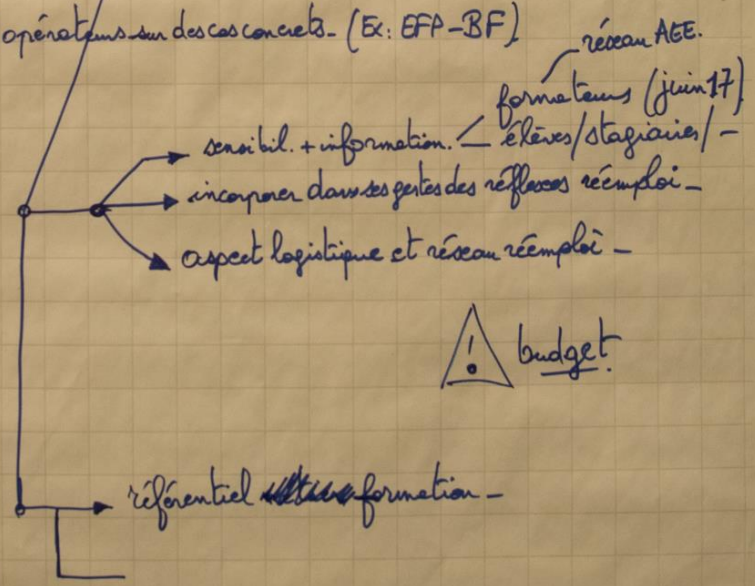 opérateurs sur des cas concrets - (Ex: EFP-BF)
réseau AEE.
formateurs (juin 17)
sensibil. + information. élèves/stagiaires/-
incorporer dans ses gestes des réflexes réemploi -
aspect logistique et réseau réemploi -
! budget.
référentiel formation -